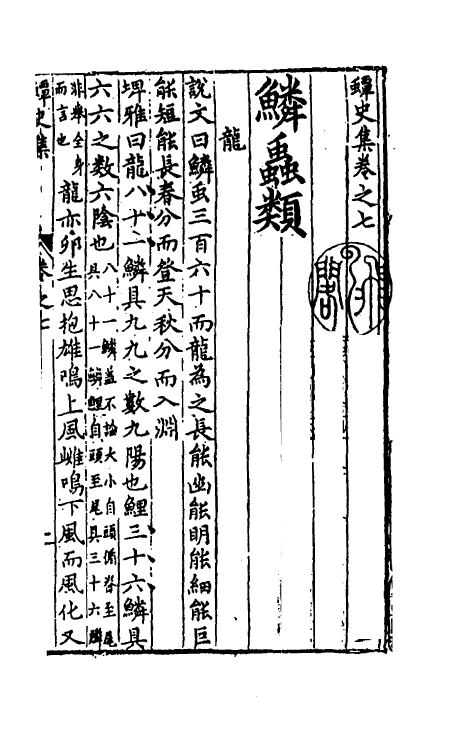 蟫史集卷之七
鱗蟲類
龍
說文曰鱗虫三百六十而龍為之長能幽能明能細能巨
能短能長春分而登天秋分而入淵
埤雅曰龍八十一鱗具九九之數九陽也鯉三十六鱗具
六六之數六陰也八十一鱗蓋不論大小自頭脊至尾
具八十一鱗鯉自頭至尾具三十六鱗
非舉全身
而言也龍亦卵生思抱雄鳴上風雌鳴下風而風化又
蟫史集
卷之七
一